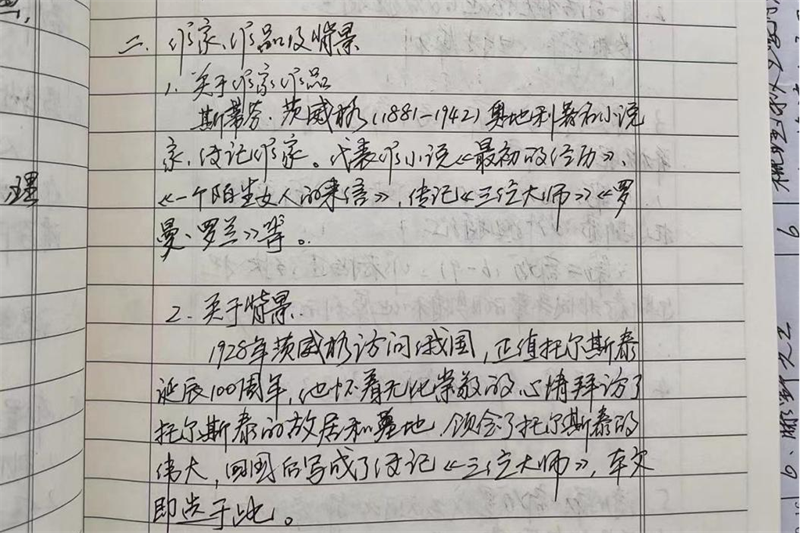 二、作家、作品及背景
1、关于作家作品
斯蒂芬·茨威格(1881-1942)奥地利著名小说
家、传记作家。代表作小说《最初的经历》、
《一个陌生女人的来信》,传记《三位大师》《罗
曼·罗兰》等。
2、关于背景
1928年茨威格访问俄国,正值托尔斯泰
诞辰100周年,他怀着无比崇敬的心情拜访了
托尔斯泰的故居和墓地,领会了托尔斯泰的
伟大,回国后写成了传记《三位大师》,本文
即选于此。
理